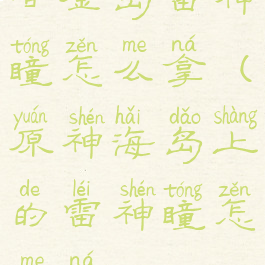 岛雷神
tóng zěn me ná
瞳怎么拿（
yuán shén hǎi dǎo shàng
原神海岛上
de léi shén tóng zěn
的雷神瞳怎
me ná